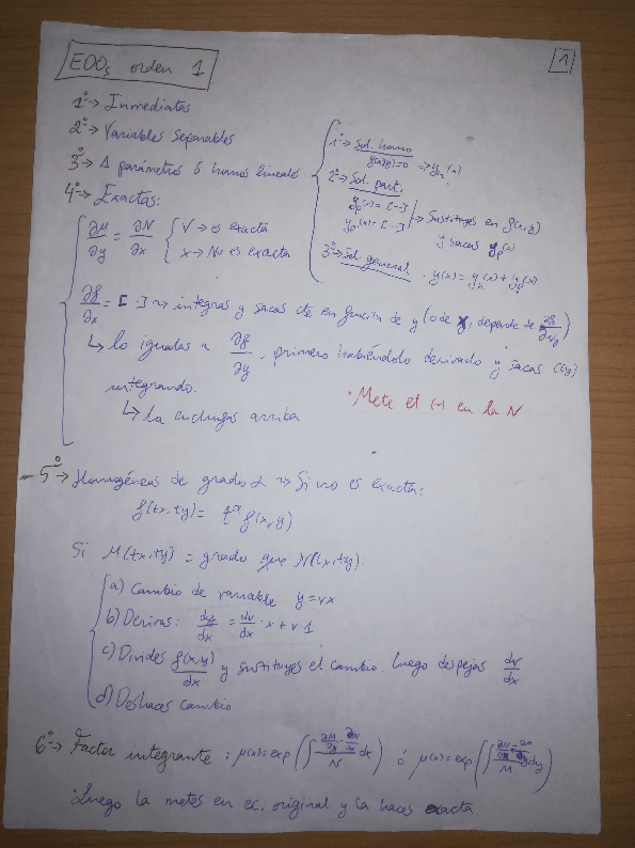 EDOs orden 1
1
1º → Inmediatas
2º → Variables separables
3º → Δ parámetros ó homos lineales
1º → Sol. homo
g(x,y)=0 → yₕ(x)
2º → Sol. part.
yₚ(x) = [-·]
yₚ'(x) = [-·]
→ Sustituyes en f(x,y)
y sacas yₚ(x)
3º → Sol. general · y(x) = yₕ(x) + yₚ(x)
4º → Exactas:
∂M/∂y = ∂N/∂x { V → es exacta
x → No es exacta
∂f/∂x = [ · ] → integras y sacas cte en función de y (o de x, depende de
↳ lo igualas a ∂f/∂y, primero habiéndolo derivado y sacas C(y)
integrando.
↳ la enchufas arriba
· Mete el (-) en la N
5º → Homogéneas de grado α → Si no es exacta:
f(tx,ty) = t^α f(x,y)
Si M(tx,ty) = grado que N(tx,ty).
a) Cambio de variable y = vx
b) Derivas: dy/dx = dv/dx · x + v·1
c) Divides f(x,y)/dx y sustituyes el cambio. Luego despejas dv/dx
d) Deshaces cambio
6º → Factor integrante : μ(x) = exp(∫ (∂M/∂y - ∂N/∂x)/N dx) ó μ(y) = exp(∫ (∂N/∂x - ∂M/∂y)/M dy)
· Luego la metes en ec. original y la haces exacta.